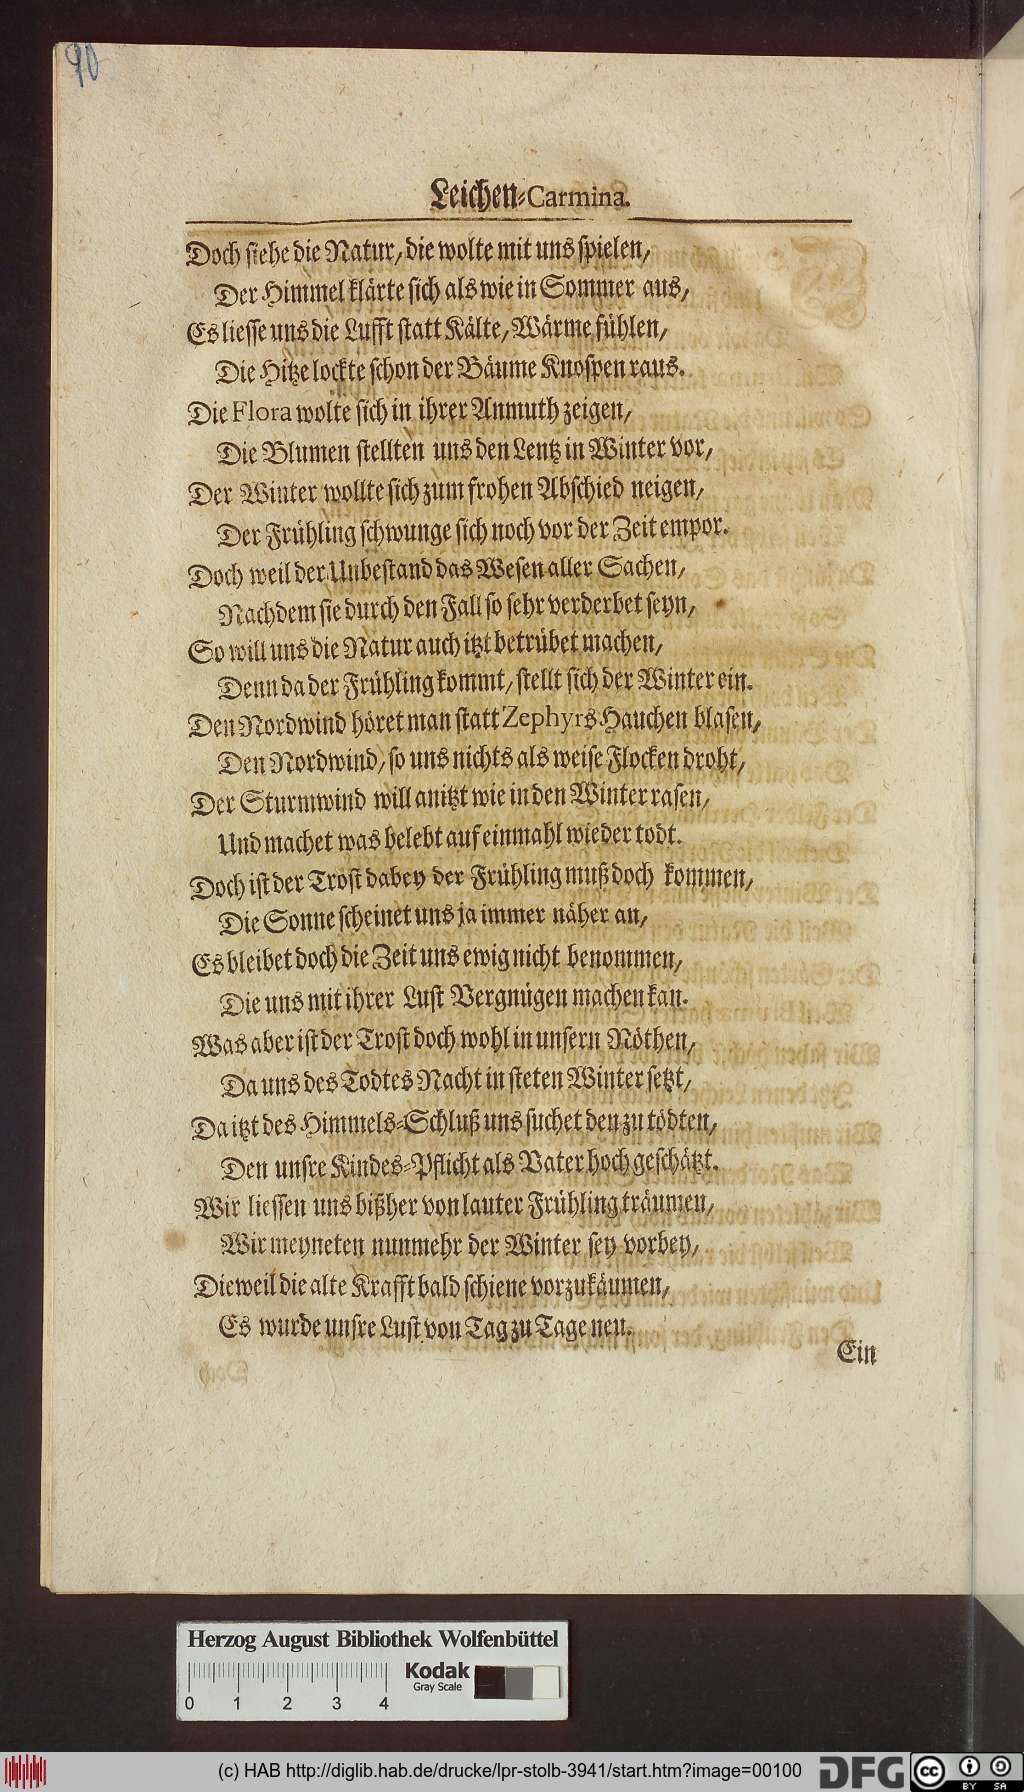 90
Leichen-Carmina.
Doch siehe die Natur, die wolte mit uns spielen,
Der Himmel klärte sich als wie in Sommer aus,
Es liesse uns die Lufft statt Kälte, Wärme fühlen,
Die Hitze lockte schon der Bäume Knospen raus.
Die Flora wolte sich in ihrer Anmuth zeigen,
Die Blumen stellten uns den Lentz in Winter vor,
Der Winter wollte sich zum frohen Abschied neigen,
Der Frühling schwunge sich noch vor der Zeit empor.
Doch weil der Unbestand das Wesen aller Sachen,
Nachdem sie durch den Fall so sehr verderbet seyn,
So will uns die Natur auch itzt betrübet machen,
Denn da der Frühling kommt, stellt sich der Winter ein.
Den Nordwind höret man statt Zephyrs Hauchen blasen,
Den Nordwind, so uns nichts als weise Flocken droht,
Der Sturmwind will anitzt wie in den Winter rasen,
Und machet was belebt auf einmahl wieder todt.
Doch ist der Trost dabey der Frühling muß doch kommen,
Die Sonne scheinet uns ja immer näher an,
Es bleibet doch die Zeit uns ewig nicht benommen,
Die uns mit ihrer Lust Vergnügen machen kan.
Was aber ist der Trost doch wohl in unsern Nöthen,
Da uns des Todtes Nacht in steten Winter setzt,
Da itzt des Himmels-Schluß uns suchet den zu tödten,
Den unsre Kindes-Pflicht als Vater hoch geschätzt.
Wir liessen uns bißher von lauter Frühling träumen,
Wir meyneten nunmehr der Winter sey vorbey,
Dieweil die alte Krafft bald schiene vorzukäumen,
Es wurde unsre Lust von Tag zu Tage neu.
Ein
Herzog August Bibliothek Wolfenbüttel
Kodak
Gray Scale
0 1 2 3 4
(c) HAB http://diglib.hab.de/drucke/lpr-stolb-3941/start.htm?image=00100
DFG
cc BY SA